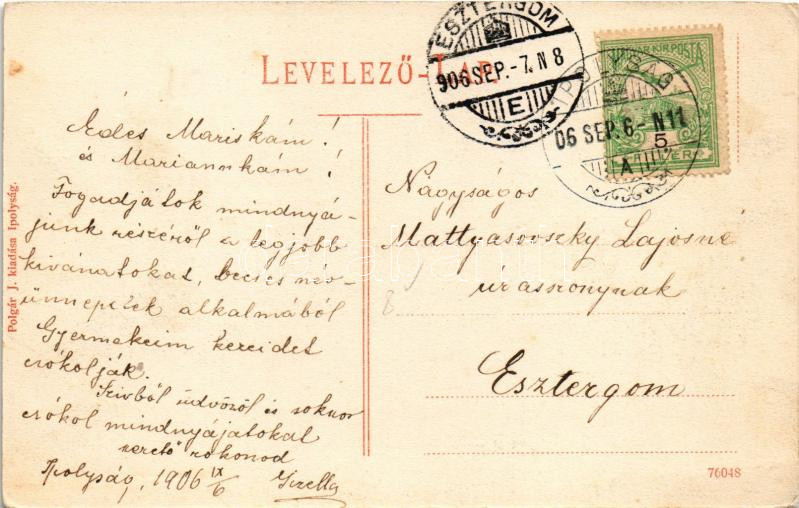 LEVELEZŐ-LAP
ESZTERGOM
906 SEP.-7. N 8
E
IPOLYSÁG
06 SEP. 6 - N 11
A
MAGYAR KIR. POSTA
5
Édes Mariskám!
és Mariannkám!
Fogadjátok mindnyá-
junk részéről a legjobb
kivánatokat, becses nev-
ünnepetek alkalmából
Gyermekeim kezeidet
csókolják.
Szivből üdvözöl és sokszor
csókol mindnyájatokat
szerető rokonod
Ipolyság, 1906 IX/6 Gizella
Nagyságos
Mattyasovszky Lajosné
úrasszonynak
Esztergom
Polgár J. kiadása Ipolyság.
76048